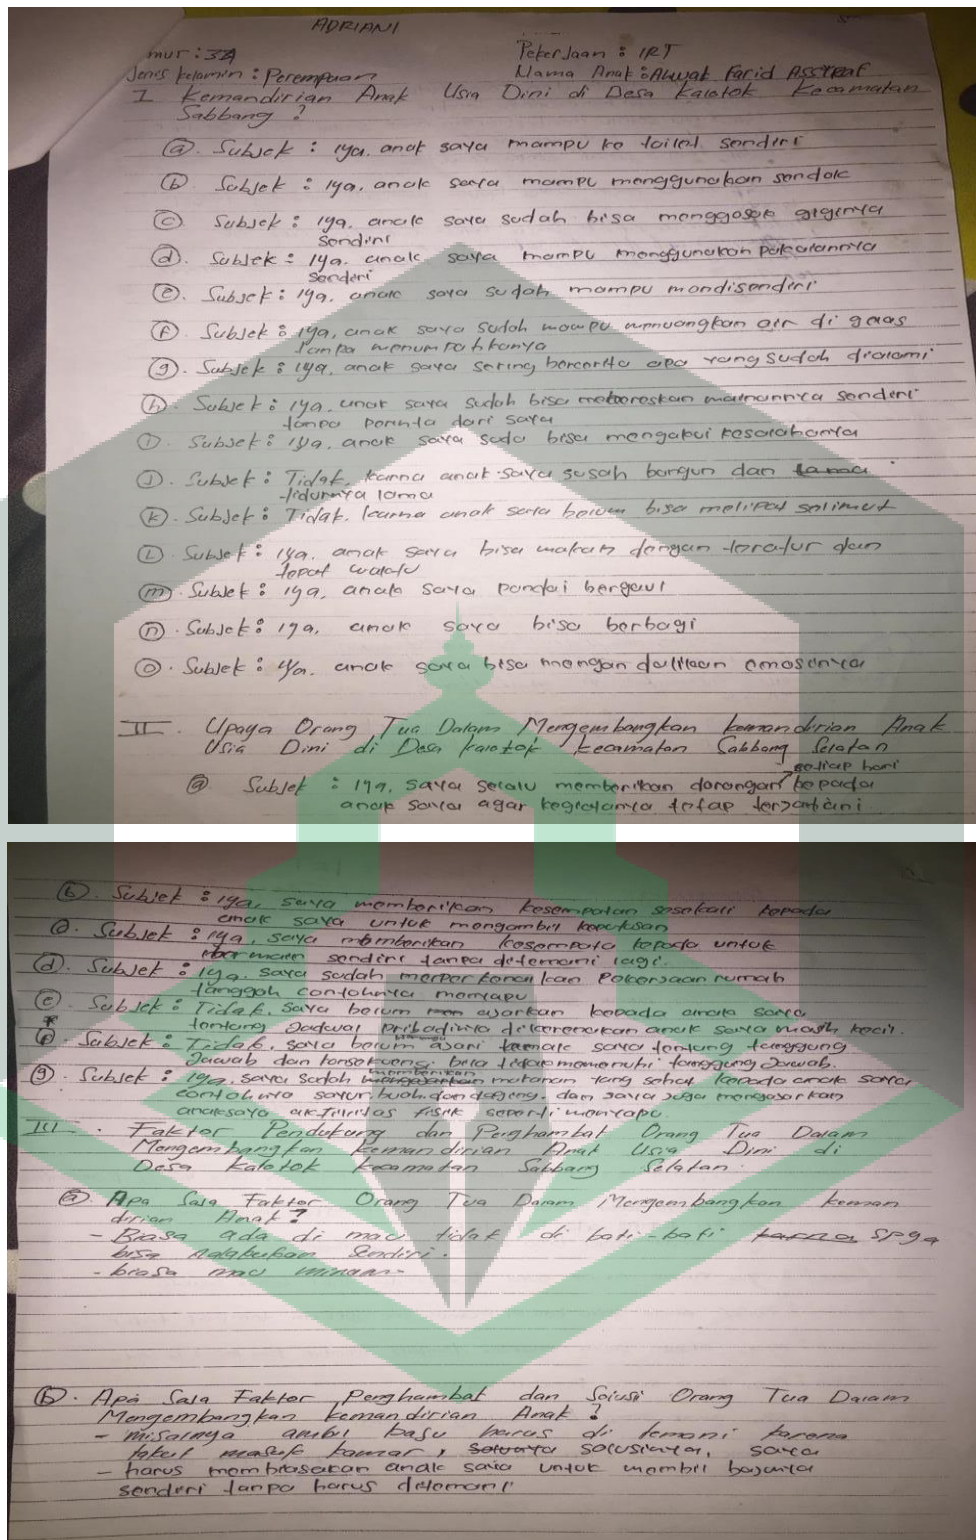 ADRIANI
mur : 32
Pekerjaan : IRT
Jenis kelamin : Perempuan
Nama Anak : Farid
I Kemandirian Anak Usia Dini di Desa Kalotok Kecamatan
Sabbang ?
(a). Subjek : iya. anak saya mampu ke toilet sendiri
(b) Subjek : iya. anak saya mampu menggunakan sendok
(c) Subjek : iya. anak saya sudah bisa menggosok giginya
sendiri
(d). Subjek : iya. anak saya mampu menggunakan pakaiannya
senderi
(e). Subjek : iya. anak saya sudah mampu mandisendiri
(f). Subjek : iya, anak saya sudah mampu menuangkan air di gelas
tanpa menumpahkanya
(g). Subjek : iya. anak saya sering bercerita apa yang sudah dialami
(h). Subjek : iya. anak saya sudah bisa mainannya sendiri
tanpa perinta dari saya
(i). Subjek : iya, anak saya suda bisa mengakui kesalahanya
(j). Subjek : Tidak, karna anak saya susah bangun dan lama
tidurnya lama
(k). Subjek : Tidak. karna anak saya belum bisa melipat selimut
(L) Subjek : iya. anak saya bisa makan dengan teratur dan
tepat waktu
(m). Subjek : iya, anak saya pandai bergaul
(n). Subjek : iya, anak saya bisa berbagi
(o). Subjek : iya. anak saya bisa mengan dalikan emosinya
II. Upaya Orang Tua Dalam Mengembangkan kemandirian Anak
Usia Dini di Desa Kalotok Kecamatan Sabbang Selatan
setiap hari
(a) Subjek : iya, saya selalu memberikan dorongan kepada
anak saya agar kegiatanya tetap
(b). Subjek : iya, saya memberikan kesempatan sesekali kepada
anak saya untuk mengambil keputusan
Subjek : iya, saya memberikan kesempata kepada untuk
bermain sendiri tanpa ditemani lagi.
(d). Subjek : iya. saya sudah pekerjaan rumah
tanggah contohnya menyapu
(e) Subjek : Tidak. saya belum ajarkan kepada anak saya
tentang Jadwal pribadinya dikarenakan anak saya masih kecil.
(f). Subjek : Tidak, saya belum ajari anak saya tentang tanggung
Jawab dan konsekuensi bila tidak memenuhi tanggung Jawab.
memberikan
(g) Subjek : iya. saya sudah mengajarkan makanan yang sehat kepada anak saya
contohnya sayur buah dan daging. dan saya juga mengajarkan
anak saya aktifitas fisik seperti menyapu.
III. Faktor Pendukung dan Penghambat Orang Tua Dalam
Mengembangkan Kemandirian Anak Usia Dini di
Desa Kalotok Kecamatan Sabbang Selatan
(a) Apa Saja Faktor Orang Tua Dalam Mengembangkan keman
dirian Anak?
- Biasa ada di mau tidak di kati-kati karna
bisa sendiri.
- biasa mau
(b). Apa Saja Faktor Penghambat dan Solusi Orang Tua Dalam
Mengembangkan kemandirian Anak ?
- misalnya ambil baju harus di temani karena
takut masuk kamar, solusinya, saya
- harus membiasakan anak saia untuk bajunya
senderi tanpa harus ditemani